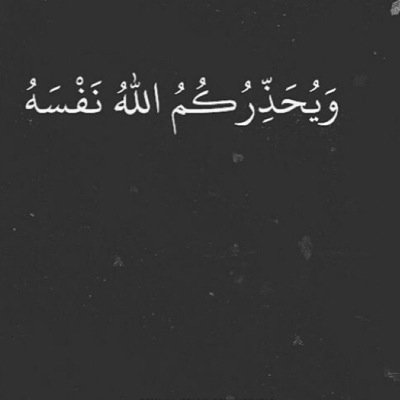 وَيُحَذِّرُكُمُ اللهُ نَفْسَهُ